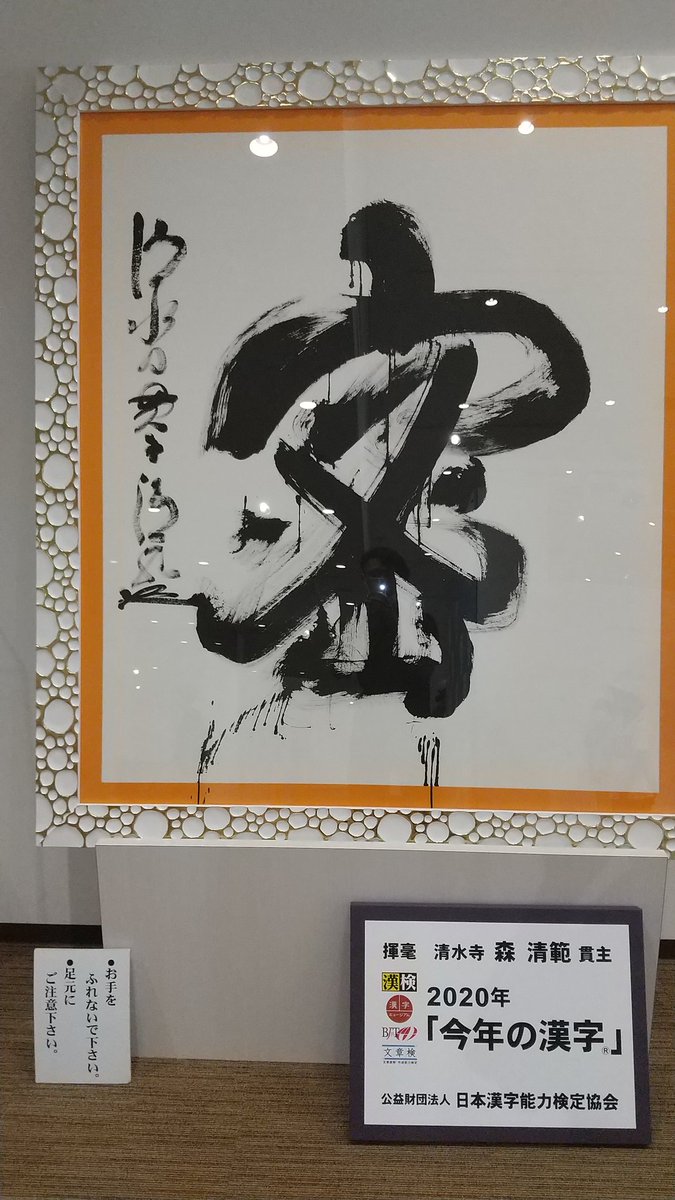 密
揮毫 清水寺 森 清範 貫主
漢検
漢字
ミュージアム
BJT
文章検
2020年
「今年の漢字®」
公益財団法人 日本漢字能力検定協会
●お手を
ふれないで下さい。
●足元に
ご注意下さい。